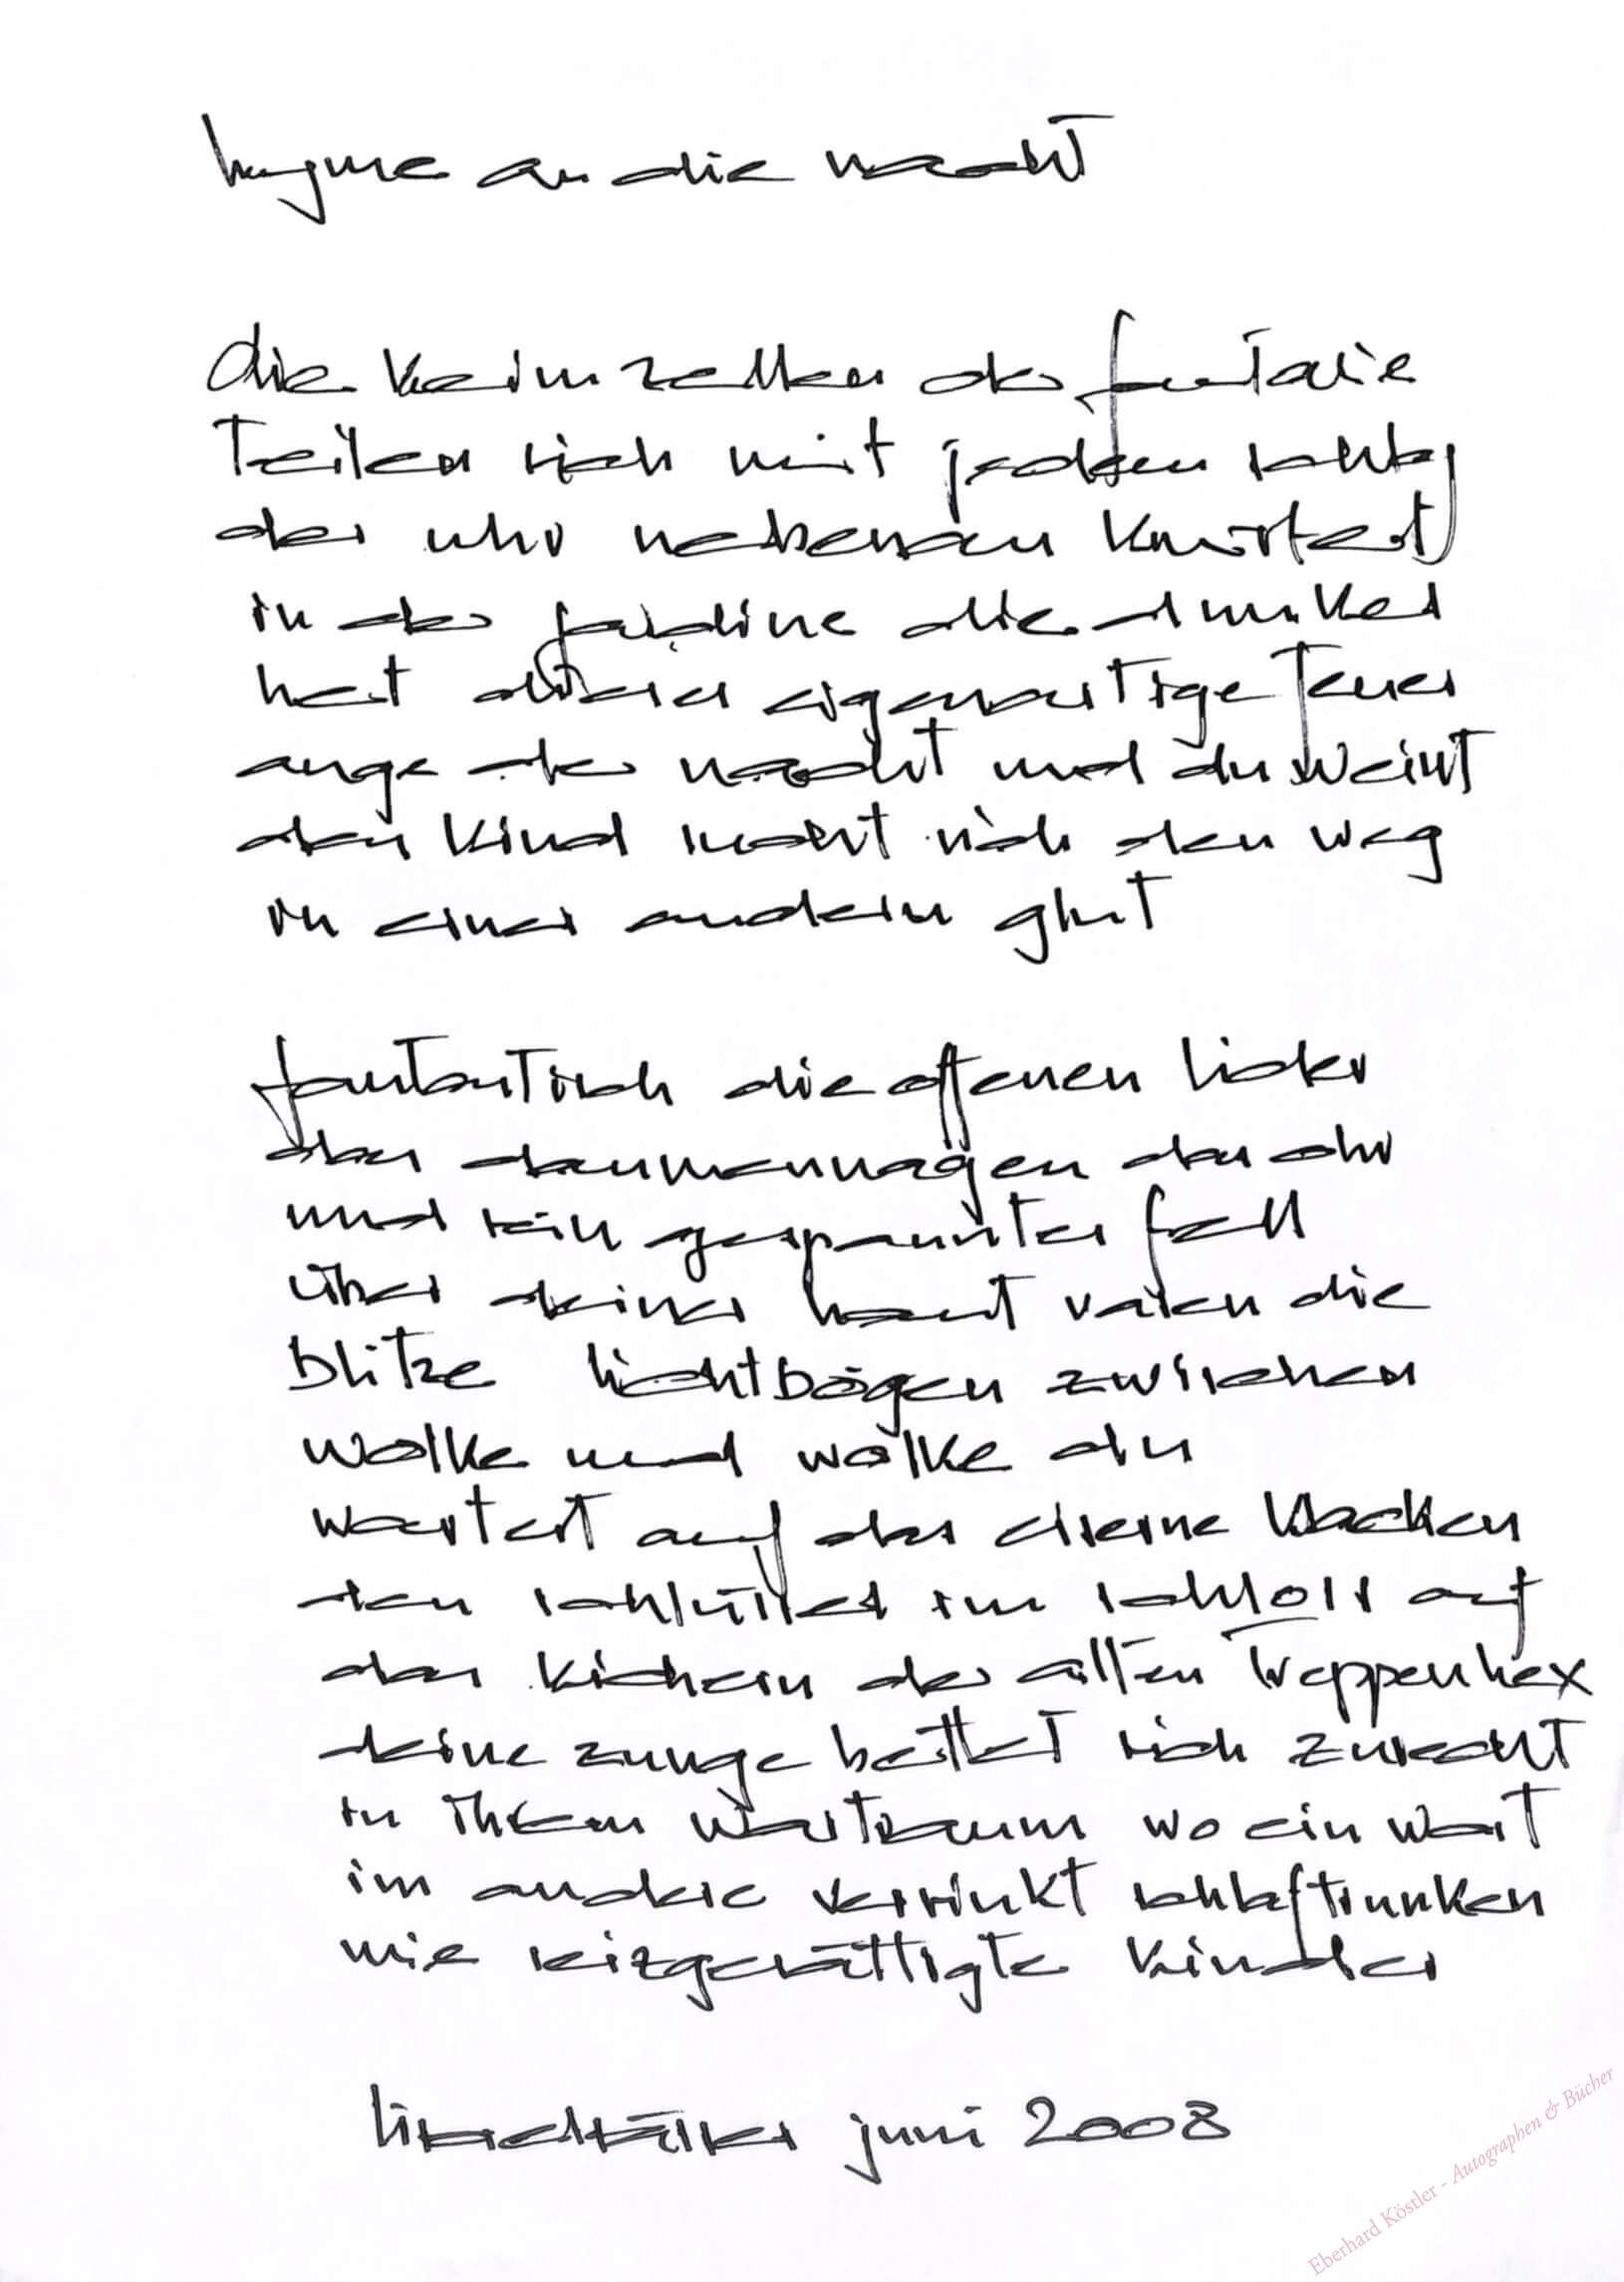 hymne an die nacht
die keimzellen der fantasie
teilen sich mit jedem schlag
der uhr nebenan knistert
in der gardine die dunkel
heit dieses eigenartige feuer
auge der nacht und du weisst
das kind sucht sich den weg
in einer andern glut
fantastisch die offenen lider
das daumennagen das ohr
und ein gespanntes fell
über deiner haut rasen die
blitze lichtbögen zwischen
wolke und wolke du
wartest auf das eiserne klacken
den schlüssel im schloss auf
das kichern der alten treppenhex
deine zunge bettet sich zurecht
in ihrem wartraum wo ein wort
im andere versinkt schlaftrunken
wie reizgesättigte kinder
juni 2008
Eberhard Köstler - Autographen & Bücher